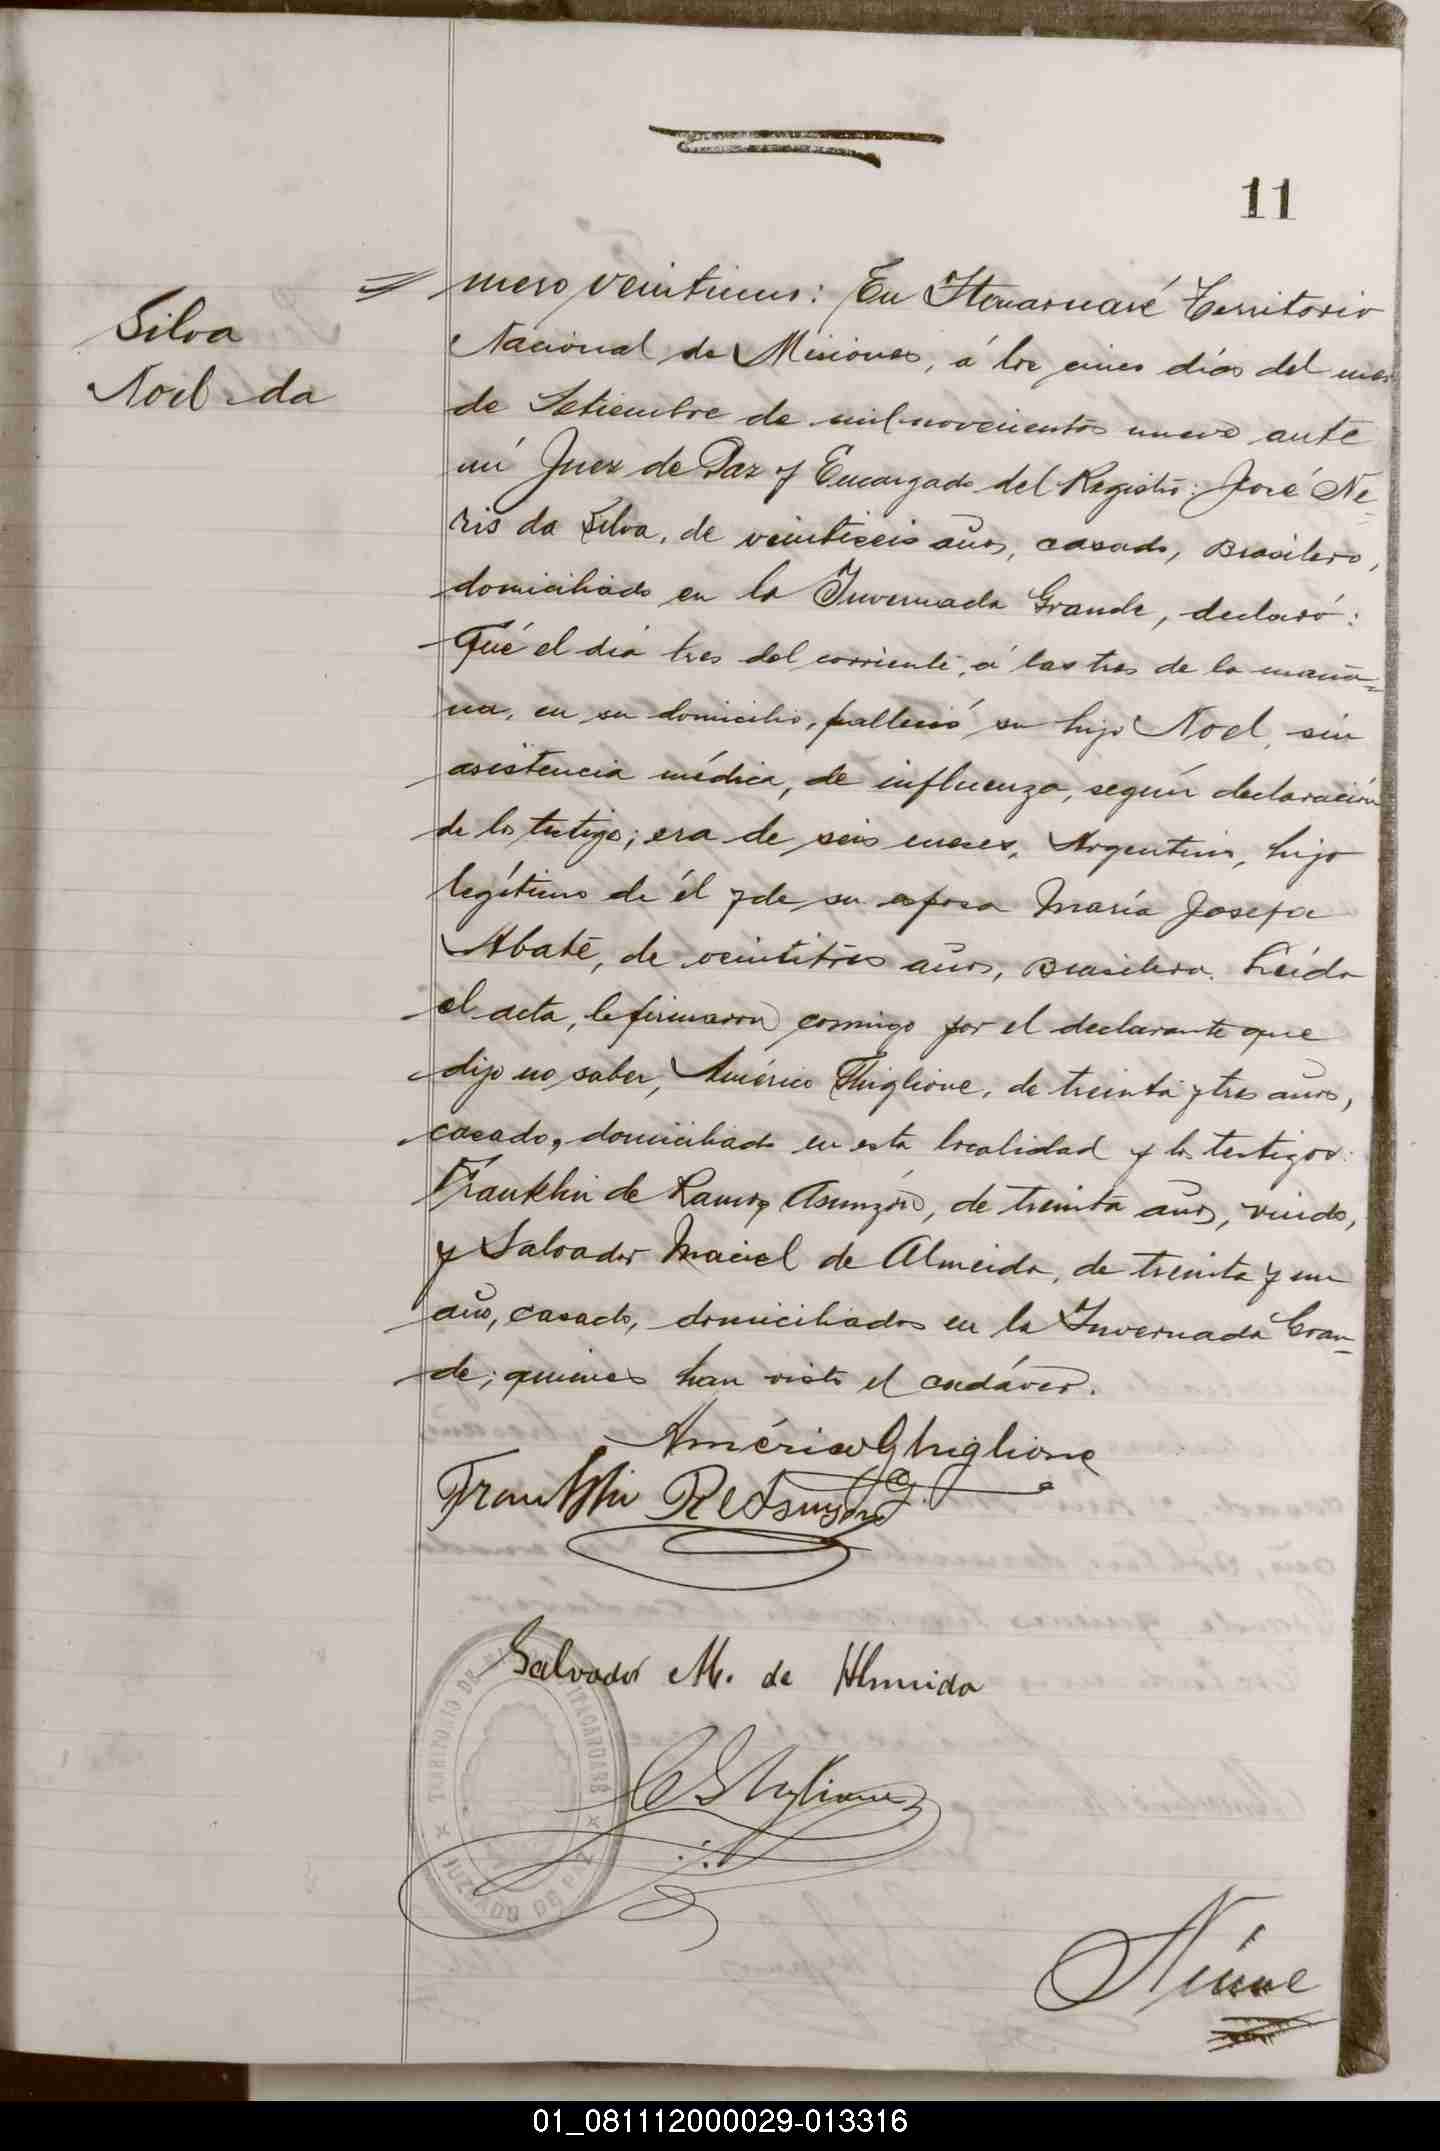 11
Silva
Noel da
mero veintiuno: En Itacaruaré Territorio
Nacional de Misiones, á los cinco días del mes
de Setiembre de mil novecientos nueve ante
mí Juez de Paz y Encargado del Registro: José Ne=
ris da Silva, de veintiseis años, casado, Brasilero,
domiciliado en la Invernada Grande, declaró:
Qué el día tres del corriente, á las tres de la maña=
na, en su domicilio, falleció su hijo Noel, sin
asistencia médica, de influenza, según declaración
de los testigos; era de seis meses, Argentino, hijo
legítimo de él y de su esposa María Josefa
Abate, de veintitrés años, Brasilera. Leída
el acta, la firmaron conmigo por el declarante que
dijo no saber, Américo Ghiglione, de treinta y tres años,
casado, domiciliado en esta localidad y los testigos:
Franklin de Ramos Asunzón, de treinta años, viudo,
y Salvador Maciel de Almeida, de treinta y un
año, casado, domiciliados en la Invernada Gran=
de; quienes han visto el cadáver.
Américo Ghiglione
Franklin R Asunzón
Salvador M. de Almeida
TERRITORIO DE ITACARUARÉ
JUZGADO DE PAZ
Nueve
01_081112000029-013316